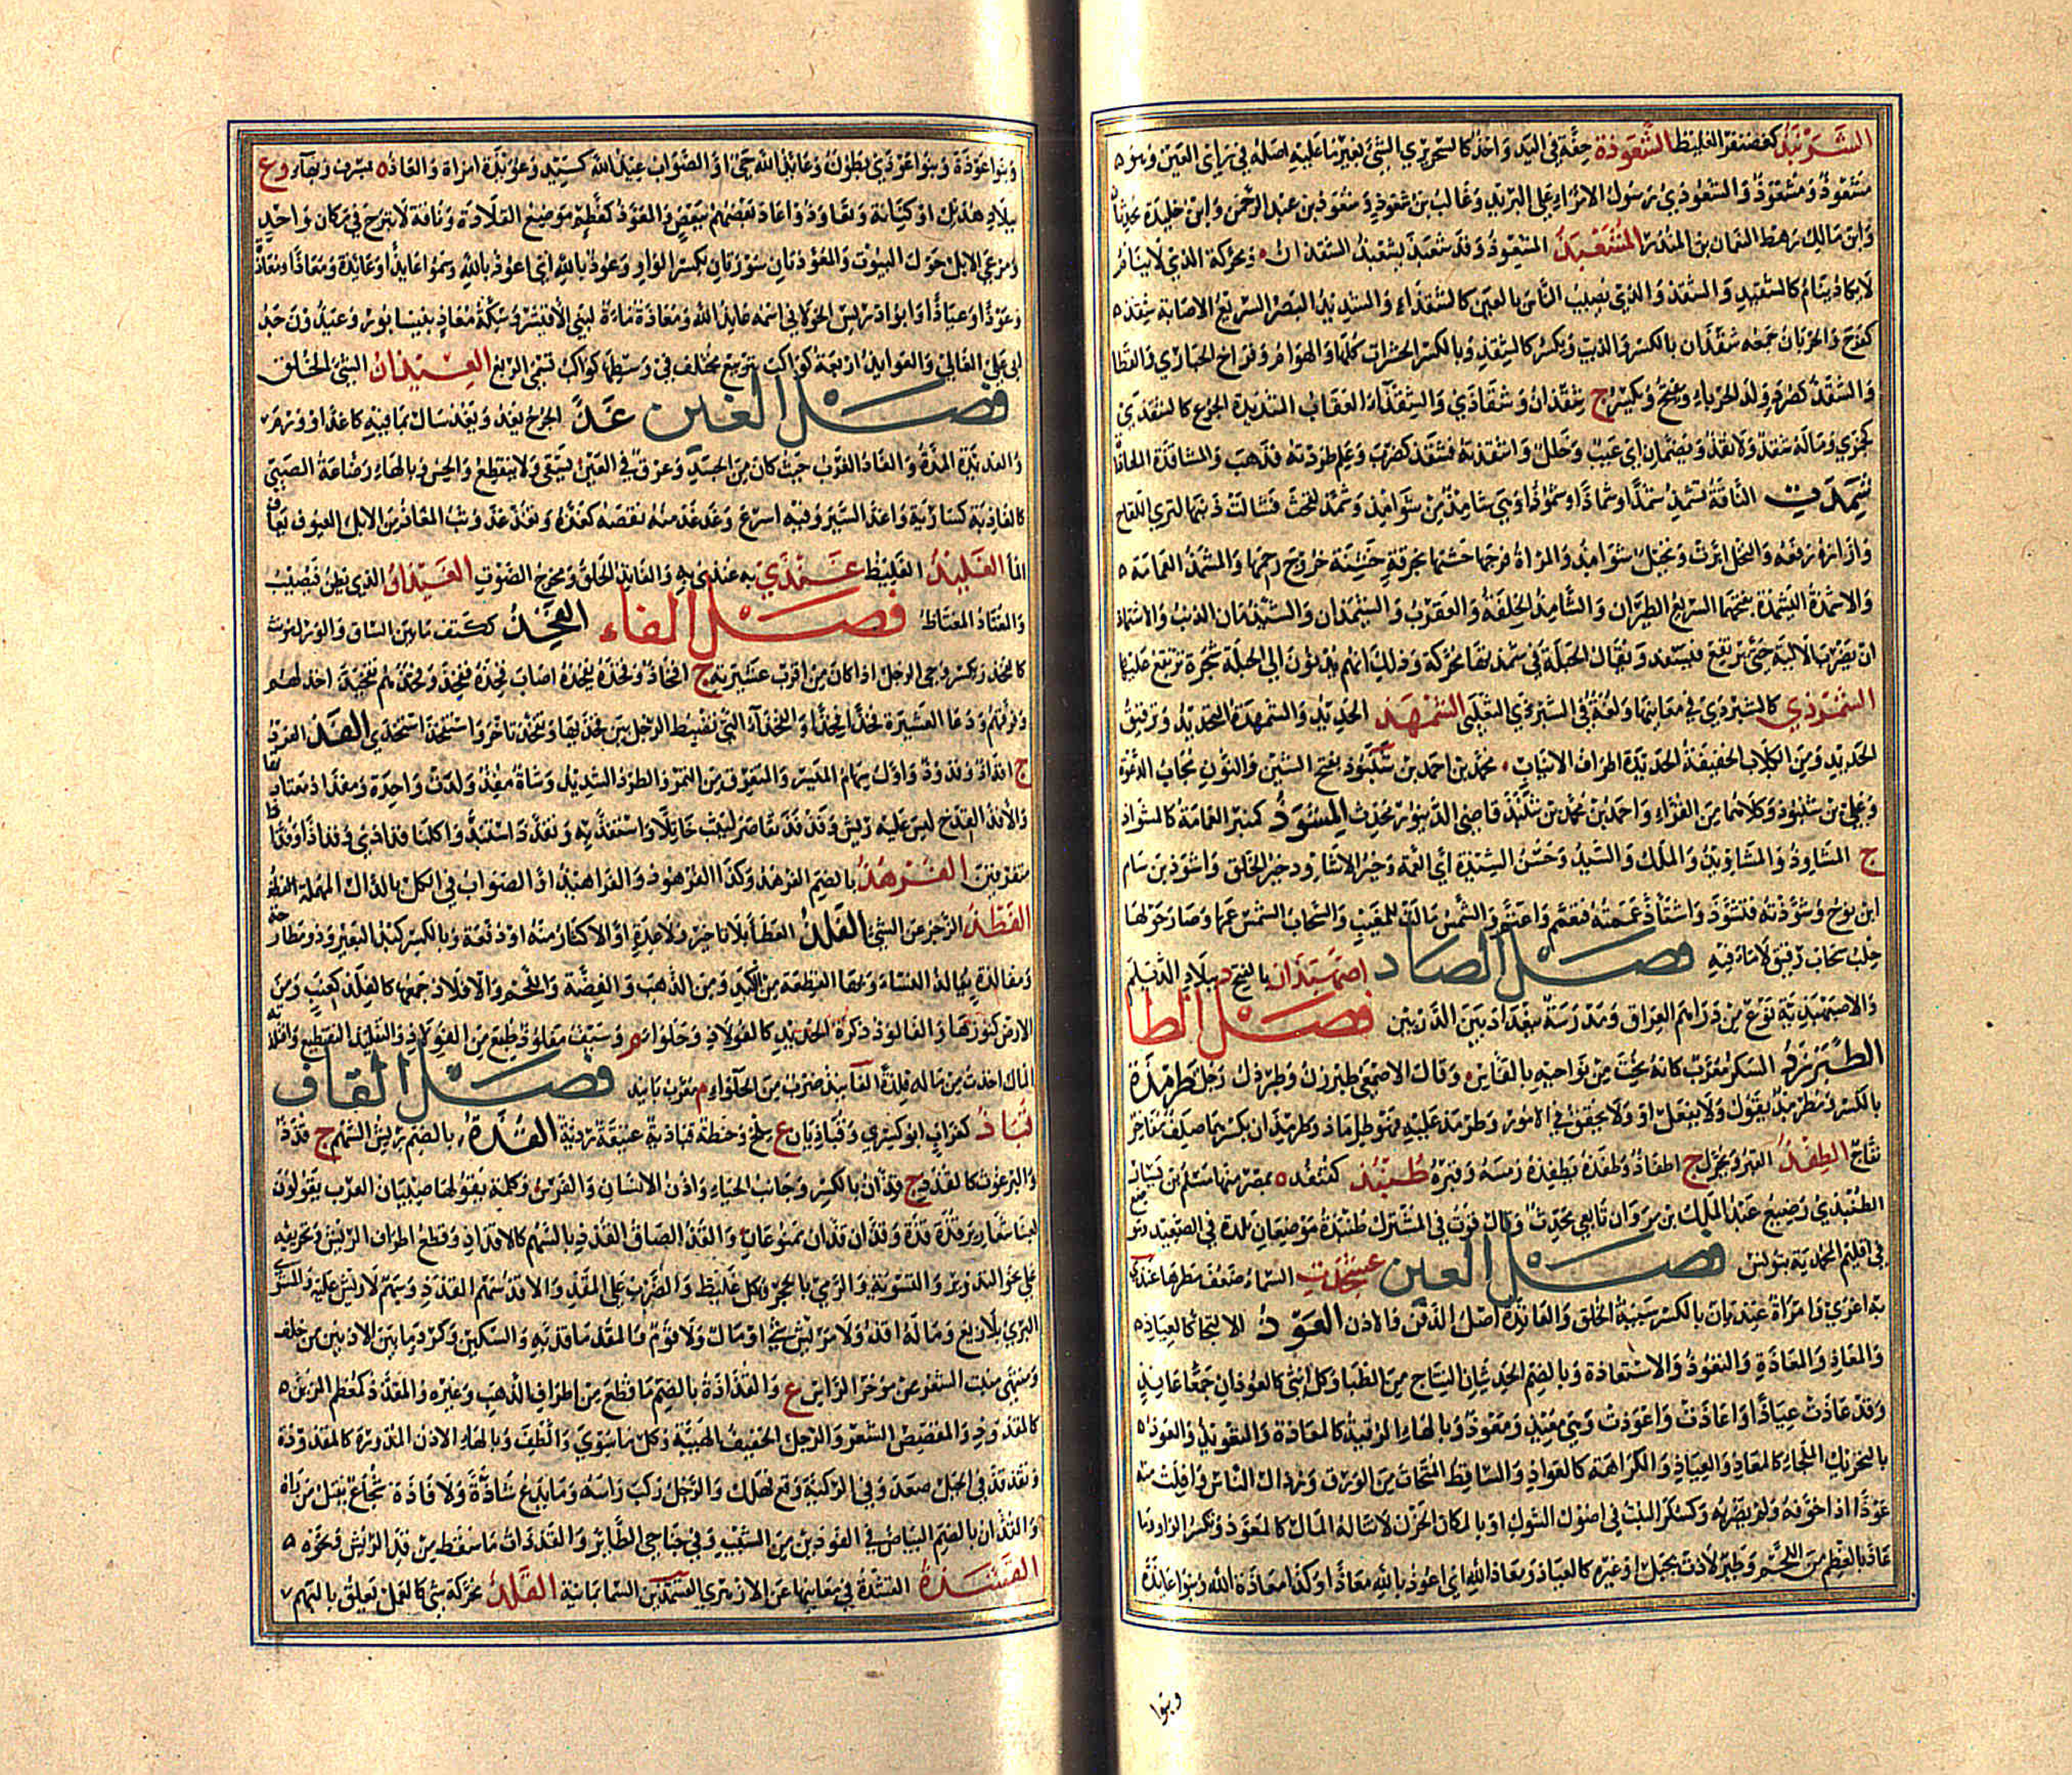 الشَرَنْبَذُ كغضنفر الغليظ الشَّعْوَذَة خفة في اليد واخذ كالسحر يرى الشئ بغير ما عليه اصله في رأى العين وهو
مشعوذ ومشعوذ والشعوذي رسول الامراء على البريد وغالب بن شعوذ وشعوذ بن عبد الرحمن وابن خليدة محدثان
وابن مالك رهط النعمان بن المنذر المُشَعْبِذُ المشعوذ وقد شعبذ يشعبذ الشقذان ومحركة الذي لا ينام
لا يكاد ينام كالشقيذ والشقذ والذي يصيب الناس بالعين كالشقذاء والشديد البصر السريع الاصابة شقذ
كفرح والحرباء جمعه شقذان بالكسر والذئب ويكسر كالشقذ وبالكسر الحشرات كلها والهوام وفراخ الحبارى والقطا
والشقذ كصرد ولد الحرباء ويفتح ويكسر ج شقذان وشقاذى والشقذاء العقاب الشديدة الجوع كالشقذى
كجمزى وما له شقذ ولا نقذ ويضمان اى عيب وخلل واشقذته فشقذ كضرب وعلم طردته فذهب والمشاقذة المعاداة
شَمَذَت الناقة تشمذ شمذا وشماذا وشموذا وهي شامذ من شوامذ وشمذ لقحت فشالت ذنبها لترى اللقاح
وازاره رفعه والنخل ابرت ونخيل شوامذ والمرأة فرجها حشته بخرقة خشية خروج رحمها والمشمذ العمامة
والاشمذة الشمذة بفتحهما السريع الطيران والشامذ الخلفة والعقرب والشيمذان والشيذمان الذئب والاشتماذ
ان يضرب الالية حتى ترتفع فيسفد ويقال الحبلة في شمذ بقا محركة وذلك انهم يدنون الى الحبلة شجرة ترتفع عليها
الشَمَرْذَى كالشبرذى في معانيها ولغة في الشبرذى الثعلبى الشَمْهَذ الحديد والشمهذة التحديد وترقيق
الحديد ومن الكلاب الخفيفة الحديدة اطراف الانياب محمد بن احمد بن شَنَّبُوذ بفتح الشين والنون مجاب الدعوة
وعلي بن شنبوذ وكلاهما من القراء واحمد بن محمد بن شنبذ قاضي الدينور محدث المِشوَذ كمنبر العمامة كالمشواذ
ج المشاوذ والمشاويذ والملك والسيد وحسن الشيذة اى العمة وخير الاشاوذ خير الخلق واشوذ بن سام
ابن نوح وشوذته فتشوذ واشتاذ عممته فتعمم واعتم والشمس مالت للمغيب والسحاب الشمس عمها وصار حولها
خلب سحاب رقيق لا ماء فيه فصل الصاد اصْبَهْبَذَان بالفتح د ببلاد الديلم
والاصبهبذية نوع من دراهم العراق ومدرسة ببغداد بين الدربين فصل الطاء
الطَّبَرْزَذُ السكر معرب كانه نحت من نواحيه بالفاس وقال الاصمعي طبرزن وطبرزل رجل طِرْمِذَة
بالكسر ومطرمذ يقول ولا يفعل او ولا يحقق في الامور وطرمذ عليه فهو طرماذ وطرمذان بكسرهما صلف مفاخر
نفاج الطِفْذُ القبر ويحرك ج اطفاذ وطفذه يطفذه رمسه وقبره طُنْبُذ كقنفذ ة بمصر منها مسلم بن يسار
الطنبذي رضيع عبد الملك بن مروان تابعي محدث وقال ياقوت في المشترك طنبذة موضعان بلدة في الصعيد ومو
في اقليم المحمدية بتونس فصل العين عَنْجَذَت السماء ضعف مطرها
به اغرى وامراة عنذيان بالكسر سيئة الخلق والعانذة اصل الذقن والاذن العَوْذُ الالتجاء كالعياذ
والمعاذ والمعاذة والتعوذ والاستعاذة وبالضم الحديثات النتاج من الظباء وكل انثى كالعوذان جمعا عائذ
وقد عاذت عياذا واعاذت واعوذت وهي معيذ ومعوذ وبالهاء الرقية كالمعاذة والتعويذ والعوذ
بالتحريك الملجاء كالمعاذ والعياذ والكراهة كالعواذ والساقط المتحات من الورق ورذال الناس وافلت منه
عوذا اذا خوفه ولم يضربه وكسكر النبت في اصول الشوك او بالمكان الحزن لا تناله المال كالمعوذ وتكسر الواو وما
عاذ بالعظم من اللحم وطير لاذت بجبل او غيره كالعياذ ومعاذ الله اى اعوذ بالله معاذا وكذا معاذة الله وبنوا عائذة
وبنوا
وبنوا عوذة وبنوا عوذى بطون وعائذ الله حي او الصواب عيذ الله كسيد وعويذة امراة والعاذ ة بسرف وبهاء وع
ببلاد هذيل او كنانة وتعاوذوا عاذ بعضهم ببعض والمعوذ كمعظم موضع القلادة وناقة لا تبرح في مكان واحد
ومرعى الابل حول البيوت والمعوذتان سورتان بكسر الواو وعوذ بالله اى اعوذ بالله وسموا عائذا وعائذة ومعاذا ومعاذة
وعوذا وعياذا وابو ادريس الخولاني اسمه عائذ الله ومعاذة ماءة لبني الاقيشر وسكة معاذ بنيسابور وعيذون جد
ابى علي القالي والعوائذ اربعة كواكب بتربيع مختلف في وسطها كوكب تسمى الربع العَيْذَانُ السئ الخلق
فصل الغين غَذَّ الجرح يغذ ويغذ سال بما فيه كاغذ او ورم
والغذيذة المدة والغاذ الغرب حيث كان من الجسد وعرق في العين يسقى ولا ينقطع والحس وبالهاء رماعة الصبي
كالغاذية كسارية واغذ السير وفيه اسرع وغذغذ منه نقصه كغذه وتغذغذ وثب المغاذ من الابل العيوف يعاف
الماء الغَلِيذُ الغليظ غَنْذَى به عنذى به والغانذ الحلق ومخرج الصوت الغَيْذَانُ الذي يظن فيصيب
والمغتاذ المغتاظ فصل الفاء الفَخِذُ ككتف ما بين الساق والورك مؤنث
كالفخذ ويكسر وحي الرجل اذا كان من اقرب عشيرته ج افخاذ وفخذه يفخذه اصاب فخذه ففخذ وفخذهم تفخيذا خذلهم
وفرقهم ودعا العشيرة فخذا فخذا والفخذاء التي تضبط الرجل بين فخذيها وتفخذ تاخر واستفخذ استخذى الفَذُّ الفرد
ج افذاذ وفذوذ واول سهام الميسر والمتفرق من التمر والطرد الشديد ولدت واحدة ومفذاذ معتادتها
والافذ القدح ليس عليه ريش وفذفذ تقاصر ليثب خاتلا واستفذ به وتفذذ استبد واكلنا فذاذى وفذاذا وفذاذا
متفرقين الفُرْهُذُ بالضم الفرهد وكذا الفرهوذ والفراهيذ او الصواب في الكل بالدال المهملة الفظ
الفَطْذُ الزجر عن الشئ الفَلْذُ العطاء بلا تاخير ولا عدة او الاكثار منه او دفعة وبالكسر كبد البعير وذو مطارحة
ومفالذة يفالذ النساء وبهاء القطعة من الكبد ومن الذهب والفضة واللحم والافلاذ جمعها كالفلذ كعنب ومن
الارض كنوزها والفالوذ ذكرة الحديد كالفولاذ وحلواء م وسيف مفلوذ طبع من الفولاذ والتفليذ التقطيع وافتلذته
المال اخذت من ماله فلذة الفانيذ ضرب من الحلواء م معرب بانيد فصل القاف
قُبَاذُ كغراب ابو كسرى وقباذيان ع ببلخ وحنطة قباذية عتيقة رديئة القُذَّة بالضم ريش السهم ج قذذ
والبرغوث كالقذذ ج قذان بالكسر وجانب الحياء واذن الانسان والفرس وكلمة يقولها صبيان العرب يقولون
لعبنا شعارير قذة قذة وقذان قذان ممنوعات والقذ الصاق القذذ بالسهم كالاقذاذ وقطع اطراف الريش وتحريفه
على نحو التدوير والتسوية والرمي بالحجر وكل غليظ والضرب على المقذ والاقذ سهم القذذ وسهم لا ريش عليه والمستوى
البرى بلا زيغ وماله اقذ ولا مريش شئ او مال ولا قوم والمقذ ما قذ به والسكين وكمرد ما بين الاذنين من خلف
ومنتهى منبت الشعر من مؤخر الراس ع والقذاذة بالضم ما قطع من اطراف الذهب وغيره والمقذذ كمعظم المزين
كالمقذوذ والمقصص الشعر والرجل الخفيف الهيئة وكل ما سوى والطف وبالهاء الاذن المدورة كالمقذوذة
وتقذقذ في الجبل صعد وفي الركية وقع فهلك والرجل ركب راسه وما يدع شاذة ولا قاذة شجاع يقتل من راه
والقذان بالضم البياض في الفودين من الشيب وفي جناحى الطائر والقذذات ما سقط من قذ الريش ونحوه
القِشْذَةُ القشدة في معانيها عن الازهرى القَلَذُ محركة شئ كالقمل تعلق بالبهم